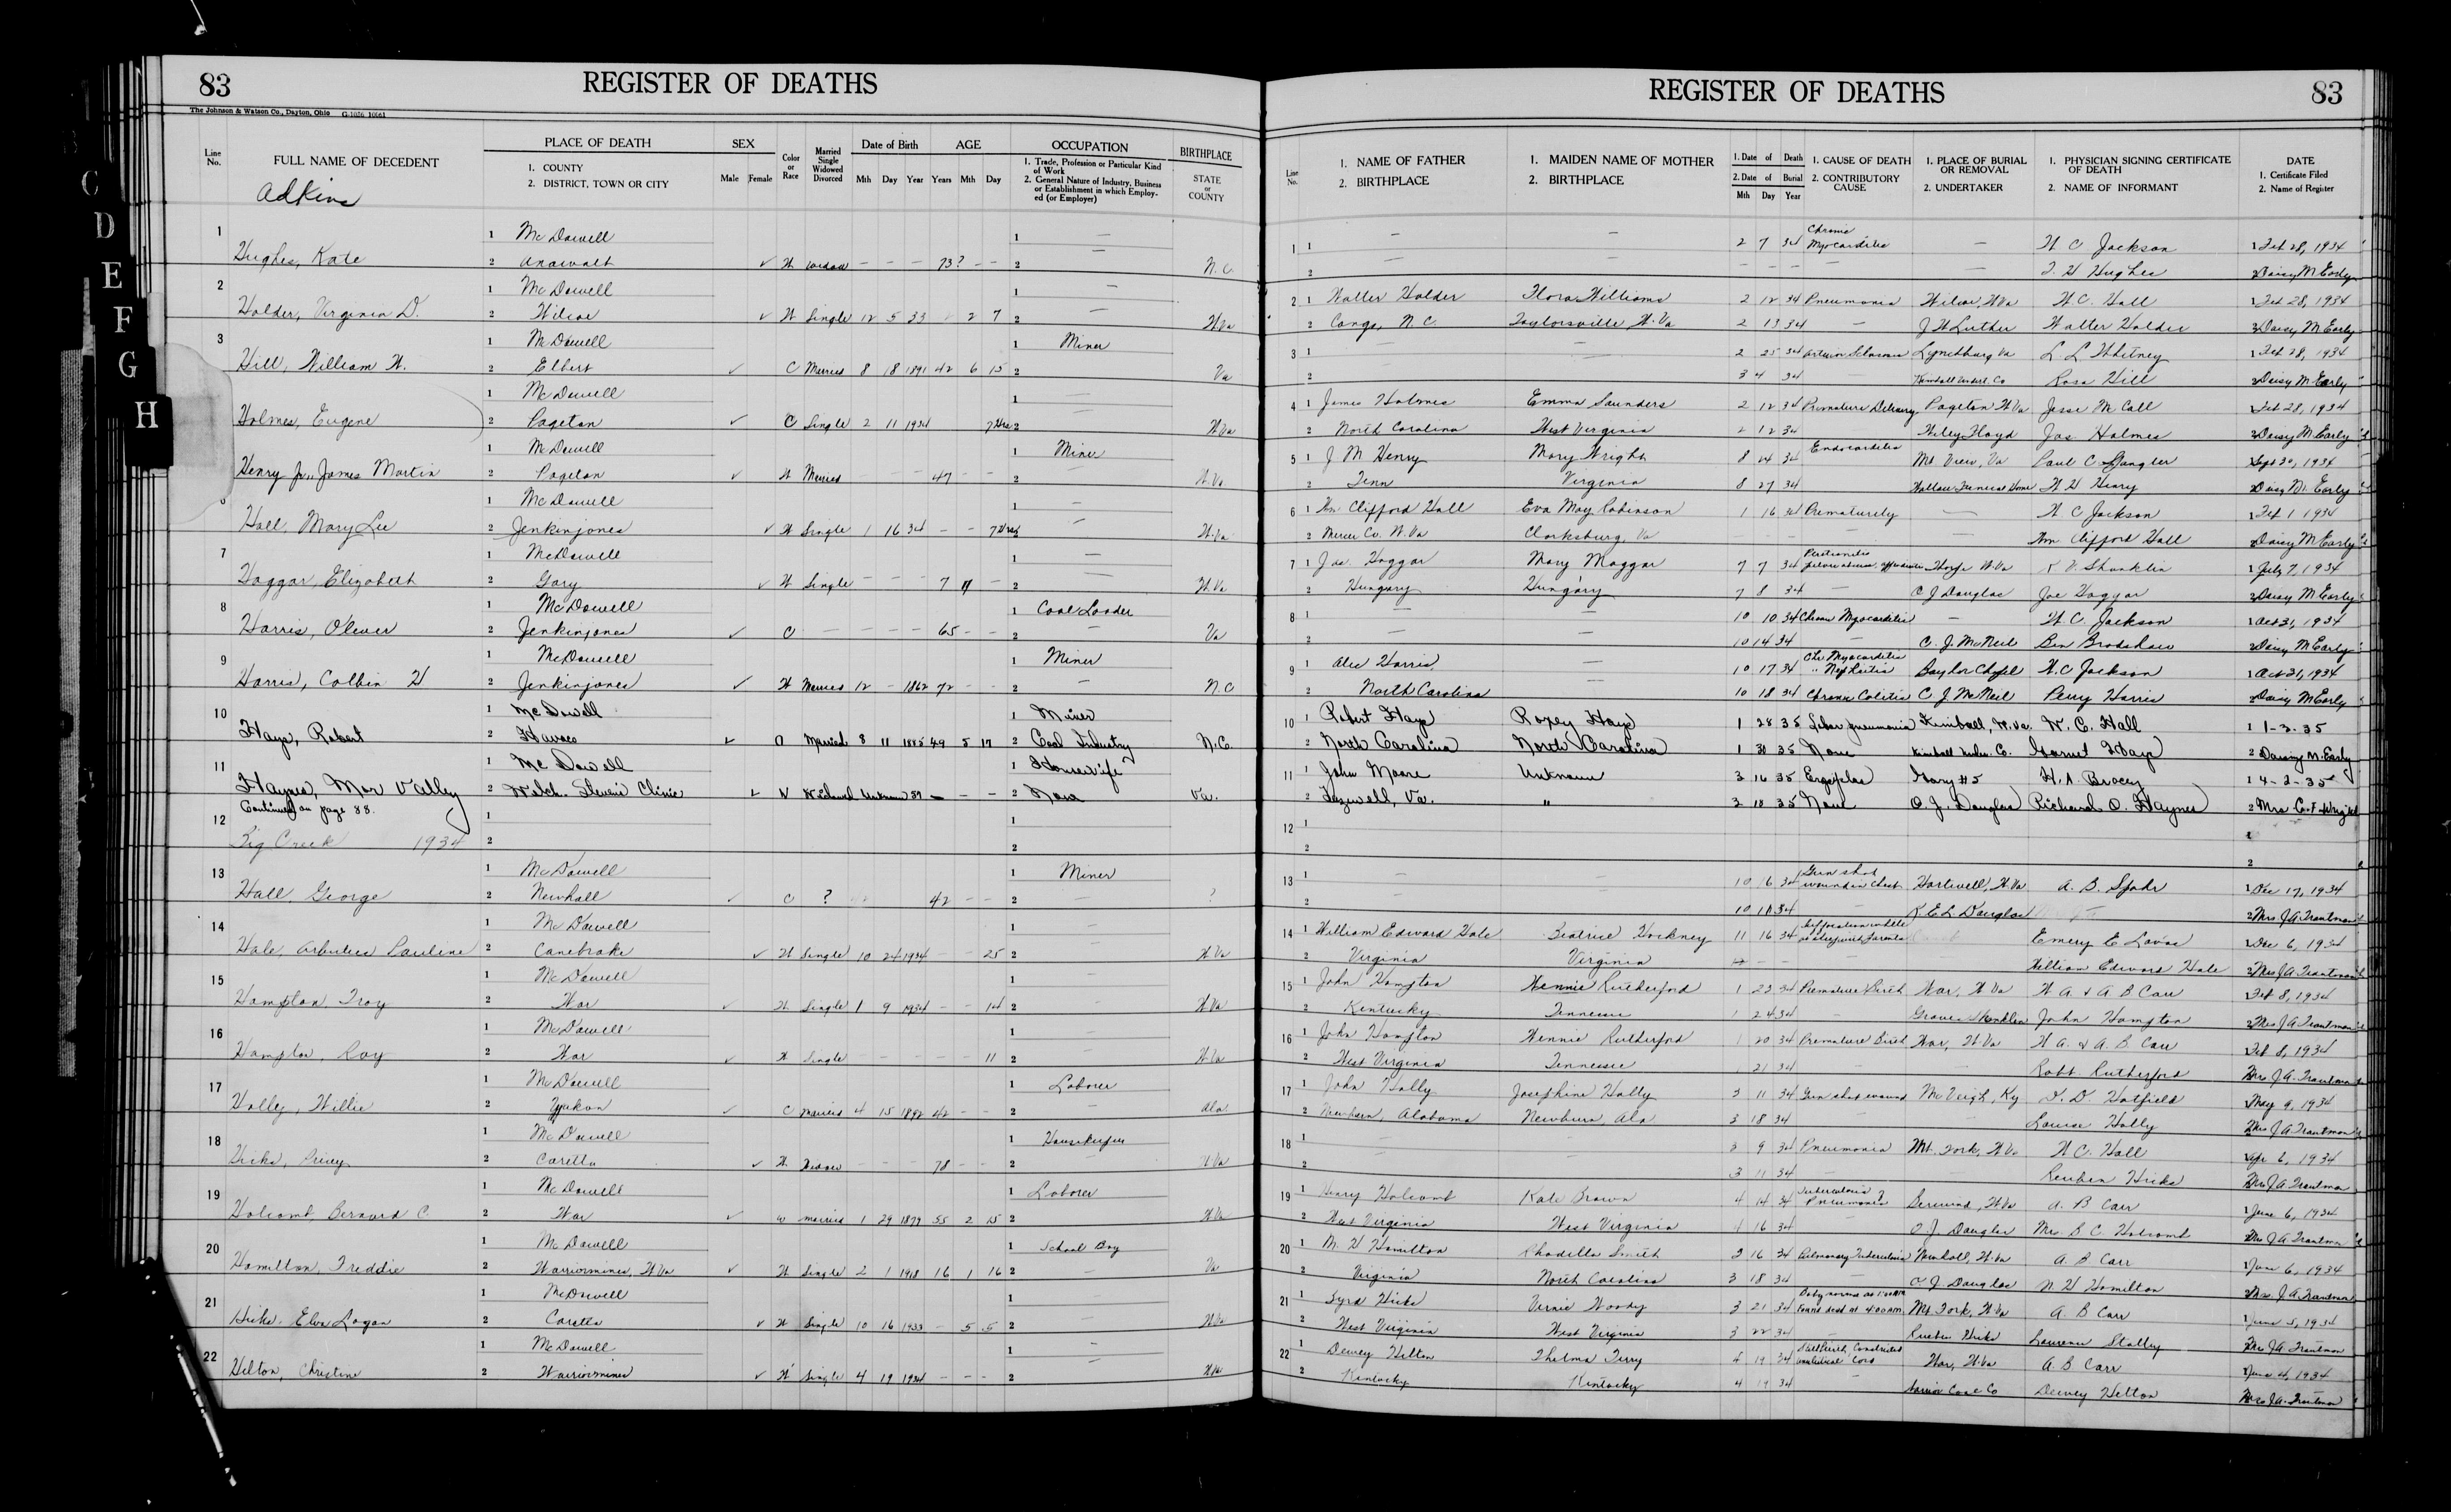 83 REGISTER OF DEATHS
The Johnson & Watson Co., Dayton, Ohio
Line No. FULL NAME OF DECEDENT PLACE OF DEATH 1. COUNTY 2. DISTRICT, TOWN OR CITY SEX Male Female Color or Race Married Single Widowed Divorced Date of Birth Mth Day Year AGE Years Mth Day OCCUPATION 1. Trade, Profession or Particular Kind of Work 2. General Nature of Industry, Business or Establishment in which Employed (or Employer) BIRTHPLACE STATE or COUNTY
Adkins
C
D
E
F
G
H
1 Hughes, Kate 1 McDowell 2 Anawalt ✓ W Widow — — — 73? — — 1 — 2 — N.C.
2 Holder, Virginia D. 1 McDowell 2 Wilcoe ✓ W Single 12 5 33 2 7 1 — 2 W.Va
3 Hill, William H. 1 McDowell 2 Elbert ✓ C Married 8 18 1891 42 6 15 1 Miner 2 Va
Holmes, Eugene 1 McDowell 2 Pageton ✓ C Single 2 11 1934 7 Hrs 1 — 2 W.Va
Henry Jr., James Martin 1 McDowell 2 Pageton ✓ W Married — — 47 — — 1 Miner 2 — W.Va
6 Hall, Mary Lee 1 McDowell 2 Jenkinjones ✓ W Single 1 16 34 — — 7 Hrs 1 — 2 — W.Va
7 Haggar, Elizabeth 1 McDowell 2 Gary ✓ W Single — — — 7 11 — 1 — 2 — W.Va
8 Harris, Oliver 1 McDowell 2 Jenkinjones ✓ C — — — — 65 — — 1 Coal Loader 2 — Va
9 Harris, Colbin H 1 McDowell 2 Jenkinjones ✓ W Married 12 — 1862 72 — — 1 Miner 2 — N.C
10 Hays, Robert 1 McDowell 2 Havaco ✓ C Married 8 11 1885 49 5 17 1 Miner 2 Coal Industry N.C.
11 Haynes, Mar Valley 1 McDowell 2 Welch Clinic ✓ W Widowed Unknown 39 — — — 1 Housewife 2 None Va.
Continued on page 88.
12 Big Creek 1934 1 2 1 2
13 Hall, George 1 McDowell 2 Newhall ✓ C ? 42 — — 1 Miner 2 — ?
14 Hale, Arbutus Pauline 1 McDowell 2 Canebrake ✓ W Single 10 24 1934 — — 25 1 — 2 — W.Va
15 Hampton, Troy 1 McDowell 2 War ✓ W Single 1 9 1934 — — 14 1 — 2 — W.Va
16 Hampton, Roy 1 McDowell 2 War ✓ W Single — — — — — 11 1 — 2 — W.Va
17 Holly, Willie 1 McDowell 2 Yukon ✓ C Married 4 15 1892 42 — — 1 Laborer 2 — Ala.
18 Hicks, 1 McDowell 2 Caretta ✓ W Widow — — — 78 — — 1 Housekeeper 2 — W.Va
19 Holcomb, Bernard C. 1 McDowell 2 War ✓ W Married 1 29 1879 55 2 15 1 Laborer 2 W.Va
20 Hamilton, Freddie 1 McDowell 2 Warriormine, W.Va ✓ W Single 2 1 1918 16 1 16 1 School Boy 2 Va
21 Hicks, Elva Logan 1 McDowell 2 Caretta ✓ W Single 10 16 1933 — 5 5 1 — 2 — W.Va
22 Hilton, Christine 1 McDowell 2 Warriormine ✓ W Single 4 19 1934 — — — 1 — 2 W.Va
REGISTER OF DEATHS 83
Line No. 1. NAME OF FATHER 2. BIRTHPLACE 1. MAIDEN NAME OF MOTHER 2. BIRTHPLACE 1. Date of Death 2. Date of Burial Mth Day Year 1. CAUSE OF DEATH 2. CONTRIBUTORY CAUSE 1. PLACE OF BURIAL OR REMOVAL 2. UNDERTAKER 1. PHYSICIAN SIGNING CERTIFICATE OF DEATH 2. NAME OF INFORMANT DATE 1. Certificate Filed 2. Name of Register
1 1 — — 2 7 34 Chronic Myocarditis — H C Jackson 1 Feb 28, 1934
2 — — — — — — T. H Hughes 2 Daisy M. Early
2 1 Walter Holder Flora Williams 2 12 34 Pneumonia Wilcoe, W.Va H.C. Hall 1 Feb 28, 1934
2 N.C. Taylorsville W.Va 2 13 34 — J W Luther Walter Holder 2 Daisy M Early
3 1 — — 2 25 34 Lynchburg Va L. L. Whitney 1 Feb 28, 1934
2 — — 3 4 34 — Kimball Undert. Co Rosa Hill 2 Daisy M. Early
4 1 James Holmes Emma Saunders 2 12 34 Premature Delivery Pageton W.Va Jesse M. Call 1 Feb 28, 1934
2 North Carolina West Virginia 2 12 34 Wiley Floyd Jas Holmes 2 Daisy M Early
5 1 J M Henry Mary Wright 8 24 34 Endocarditis Mt View, Va Paul C. Spangler Sept 30, 1934
2 Tenn Virginia 8 27 34 Wallace Funeral Home W H Henry 2 Daisy M. Early
6 1 Wm Clifford Hall Eva May Robinson 1 16 34 Prematurely — H C Jackson 1 Feb 1 1934
2 Mercer Co. W.Va Clarksburg, Va — — — — — Wm Clifford Hall 2 Daisy M Early
7 1 Joe Haggar Mary Maggar 7 7 34 Peritonitis Thorpe W.Va R. V. Shanklin 1 July 7, 1934
2 Hungary Hungary 7 8 34 — O J Douglas Joe Haggar 2 Daisy M Early
8 1 — — 10 10 34 Chronic Myocarditis — H C. Jackson 1 Oct 31, 1934
2 — — 10 14 34 — C. J. McNeil Ben Bradshaw 2 Daisy M Early
9 1 Alec Harris — 10 17 34 Chr. Myocarditis " Nephritis Baylor Chapel H.C Jackson 1 Oct 31, 1934
2 North Carolina 10 18 34 Chronic Colitis C J McNeil Perry Harris 2 Daisy M Early
10 1 Robert Hays Roxey Hays 1 28 35 Lobar pneumonia Kimball, W.Va. H. C. Hall 1 1-3-35
2 North Carolina North Carolina 1 31 35 None Kimball Under. Co. Hays 2 Daisy M. Early
11 1 John Moore Unknown 3 16 35 Gary #5 H. A. Bracey 1 4-2-35
2 Tazewell, Va. " 3 18 35 None O. J. Douglas Richard O. Haynes 2 Mrs C. F. Wright
12 1 1
2 2
13 1 — — 10 16 34 Gun shot wound in chest Hartwell, W.Va A. B. Spahr 1 Dec 17, 1934
2 — — 10 18 34 — K. E. L. Douglas 2 Mrs J A Trautman
14 1 William Edward Hale Beatrice Hockney 11 16 34 Suffocation while asleep with parents Emery E Lovas 1 Dec 6, 1934
2 Virginia Virginia — — — — William Edward Hale 2 Mrs J A Trautman
15 1 John Hampton Hennie Rutherford 1 23 34 Premature Birth War, W.Va H A. & A B Carr Feb 8, 1934
2 Kentucky Tennessee 1 24 34 — Grover Shanklin John Hampton 2 Mrs J A Trautman
16 1 John Hampton Hennie Rutherford 1 20 34 Premature Birth War, W.Va H A. & A. B Carr Feb 8, 1934
2 West Virginia Tennessee 1 21 34 — — Robt Rutherford Mrs J A. Trautman
17 1 John Holly Josephine Holly 3 11 34 Gun shot wound McVeigh, Ky D. Hatfield May 9, 1934
2 Newbern, Alabama Newbern, Ala 3 18 34 — Louise Holly Mrs J A Trautman
18 1 — — 3 9 34 Pneumonia Mt. Fork, W.Va H C. Hall Apr 6, 1934
2 — — 3 11 34 — Reuben Hicks Mrs J A. Trautman
19 1 Henry Holcomb Kate Brown 4 14 34 Tuberculosis Pneumonia ? Berwind, W.Va A. B Carr June 6, 1934
2 West Virginia West Virginia 4 16 34 O. J. Douglas Mrs. B C. Holcomb Mrs J A Trautman
20 1 M. H Hamilton Rhodella Smith 3 16 34 Pulmonary Tuberculosis Newhall, W.Va A. B Carr June 6, 1934
2 Virginia North Carolina 3 18 34 — O. J. Douglas M. H Hamilton Mrs. J A Trautman
21 1 Byrd Hicks Vernie Woody 3 21 34 Baby normal at 1:00 AM Found dead at 4:00 AM Mt Fork, W.Va A. B Carr June 5, 1934
2 West Virginia West Virginia 3 22 34 — Reuben Hicks Laurence Stalley Mrs J A Trautman
22 1 Dewey Hilton Thelma Terry 4 19 34 Still birth, Constricted umbilical Cord War, W.Va A. B Carr June 4, 1934
2 Kentucky Kentucky 4 19 34 — Warrior Coal Co Dewey Hilton Mrs J A. Trautman